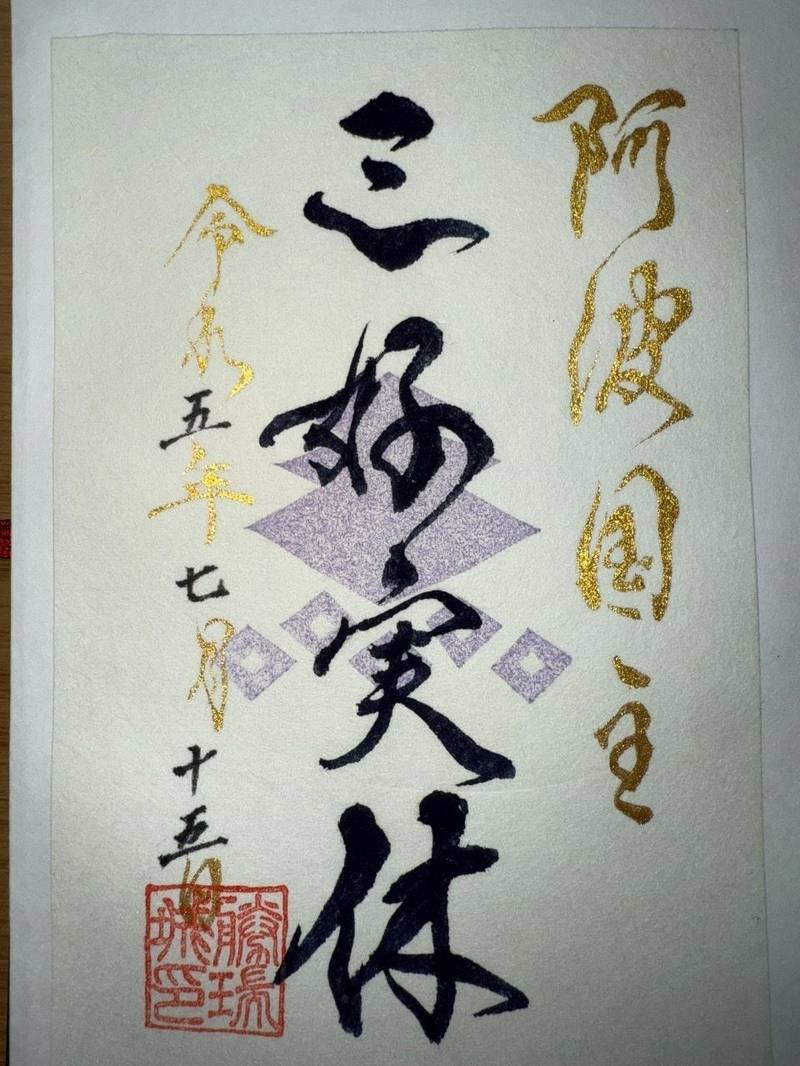 阿波国主
三好実休
令和五年七月十五日
勝瑞城印